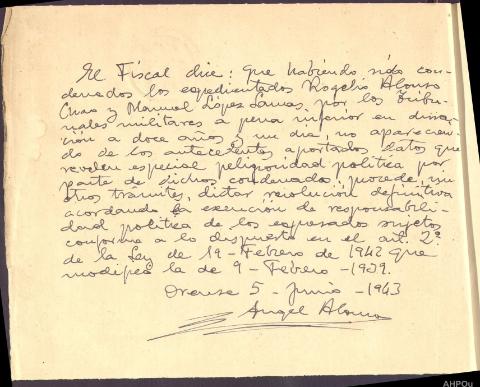 El Fiscal dice: que habiendo sido con-
denados los expedientados Rogelio Alonso
Chao y Manuel López Lamas, por los Tribu-
nales militares a pena inferior en dura-
ción a doce años y un dia, no aparecien-
do de los antecedentes aportados datos que
revelen especial peligrosidad política por
parte de dichos condenados, procede, sin
otros trámites, dictar resolución definitiva
acordando la exención de responsabili-
dad política de los expresados sujetos
conforme a lo dispuesto en el art. 2º
de la Ley de 19-Febrero de 1942 que
modifica la de 9-Febrero-1939.
Orense 5-Junio-1943
Angel Alonso
AHPOu